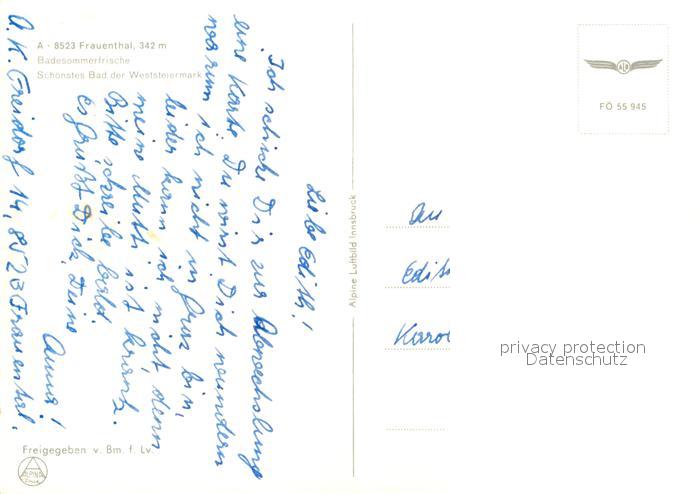 A - 8523 Frauenthal, 342 m
Badesommerfrische
Schönstes Bad der Weststeiermark
Liebe Edith!
Ich schicke Dir zur Abwechslung
eine Karte. Du wirst Dich wundern
warum ich nicht in Graz bin,
leider kann ich nicht, denn
meine Mutti ist krank.
Bitte schreibe bald.
Es grüßt Dich, Deine
Anna!
A. K. Freidorf 14, 8523 Frauental.
Freigegeben v. Bm. f. Lv.
ALPINE
Alpine Luftbild Innsbruck
FÖ 55 945
An
Edith
Karo
privacy protection
Datenschutz